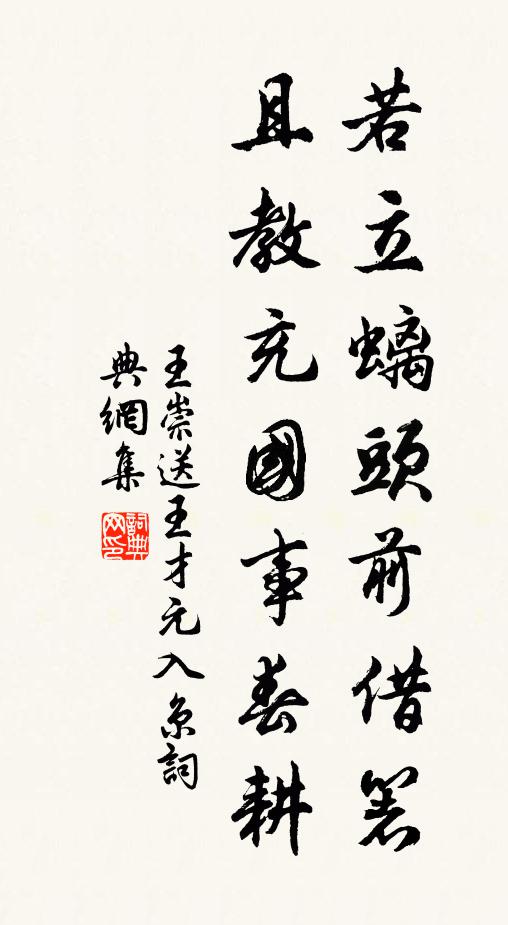 若立螭頭前借箸
且教充國事春耕
王崇送王才元入京詞
典網集
詞典網印